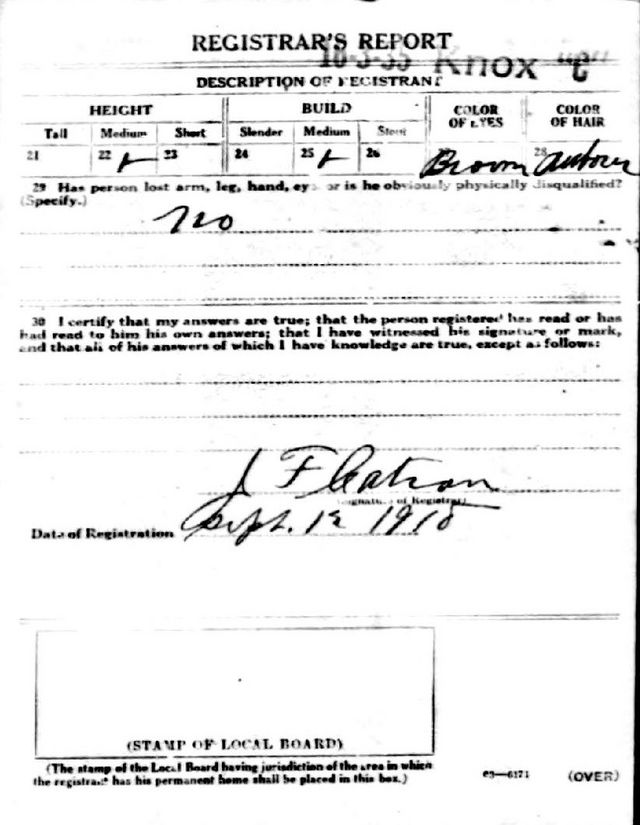 REGISTRAR'S REPORT
16-3-35 Knox "C"
DESCRIPTION OF REGISTRANT
HEIGHT BUILD COLOR OF EYES COLOR OF HAIR
Tall Medium Short Slender Medium Stout
21 22 ✓ 23 24 25 ✓ 26 Brown 28
29 Has person lost arm, leg, hand, eye or is he obviously physically disqualified?
(Specify.)
No
30 I certify that my answers are true; that the person registered has read or has
had read to him his own answers; that I have witnessed his signature or mark,
and that all of his answers of which I have knowledge are true, except as follows:
J F Catron
Signature of Registrar
Date of Registration Sept. 12 1918
(STAMP OF LOCAL BOARD)
(The stamp of the Local Board having jurisdiction of the area in which
the registrant has his permanent home shall be placed in this box.)
63—6171 (OVER)